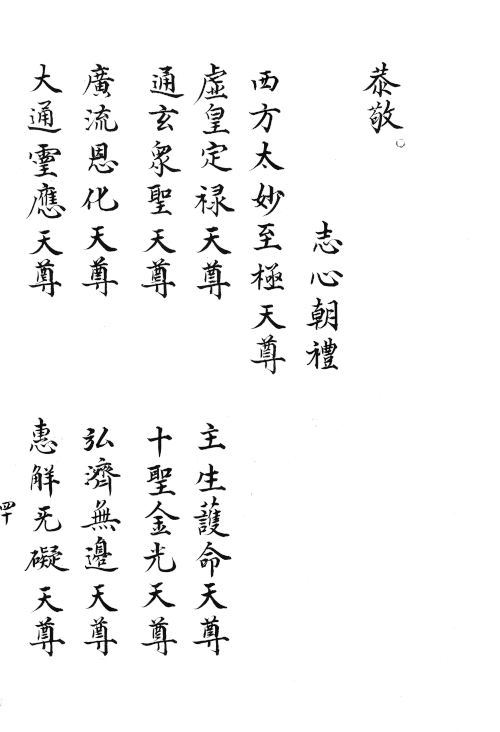 恭敬。
志心朝禮
西方太妙至極天尊
虛皇定祿天尊 主生護命天尊
通玄眾聖天尊 十聖金光天尊
廣流恩化天尊 弘濟無邊天尊
大通靈應天尊 惠解无礙天尊
四十